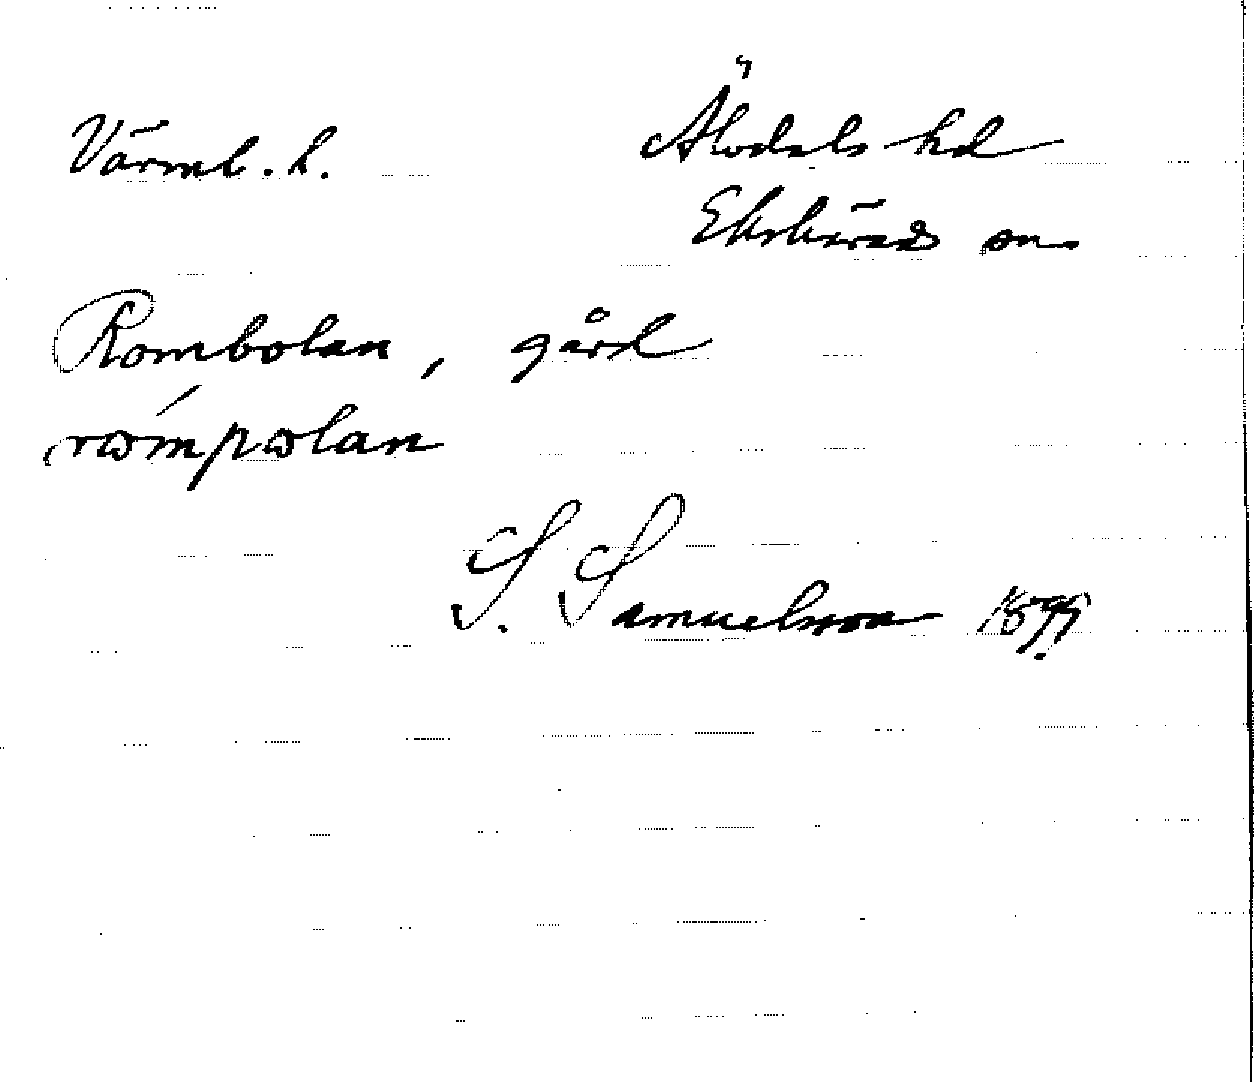 Värml. l.
Älvdals hd
Ekshärads sn
Rombolan, gård
rómpolan
S. Samuelsson